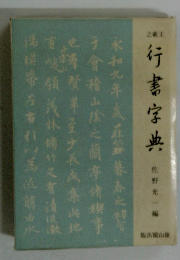 王羲之
行書字典
佐野光一編
雄山閣出版
永和九年歳在癸丑暮春之初會
于會稽山陰之蘭亭脩禊事
也羣賢畢至少長咸集此地
有峻領茂林脩竹又有清流激
湍暎帶左右引以為流觴